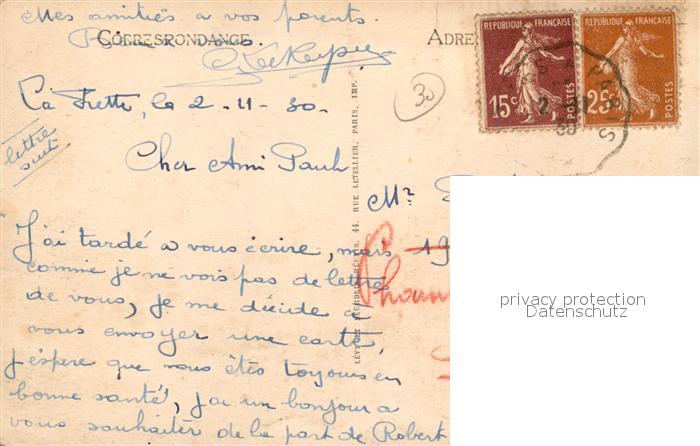 Mes amitiés a vos parents.
CORRESPONDANCE
ADRE
REPUBLIQUE FRANÇAISE
15c
POSTES
REPUBLIQUE FRANÇAISE
25c
POSTES
La Frette, le 2-11-30.
30
lettre
suit
Cher Ami Paul
Mr
J'ai tardé a vous écrire, mais
comme je ne vois pas de lettre
de vous, je me décide a
vous envoyer une carte,
j'éspere que vous êtes toujours en
bonne santé, j'ai un bonjour a
vous souhaiter de la part de Robert
19
LÉVY ET NEURDEIN RÉUNIS, 44, RUE LETELLIER, PARIS, IMP.
privacy protection
Datenschutz